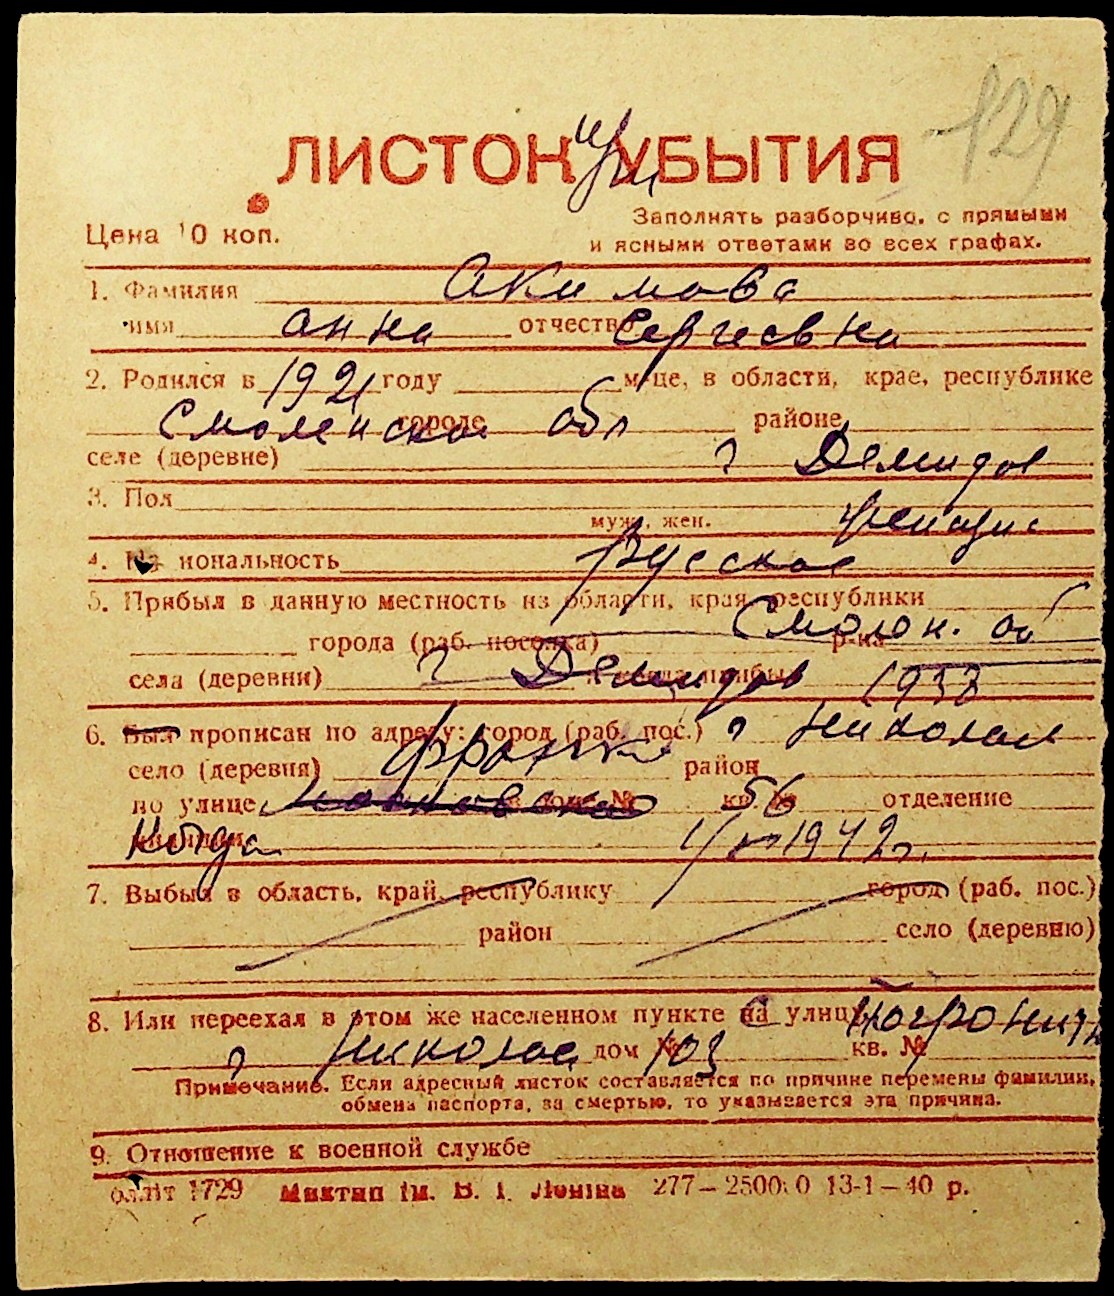 129
ЛИСТОК при УБЫТИЯ
Заполнять разборчиво, с прямыми
Цена 10 коп.
и ясными ответами во всех графах.
1. Фамилия Акимова
имя Анна отчество Сергеевна
2. Родился в 1921 году м-це, в области, крае, республике
Смоленская обл городе районе
селе (деревне) г Демидов
3. Пол
муж., жен. женщин
4. Национальность Русская
5. Прибыл в данную местность из области, края, республики
города (раб. поселка) Смолен. об р-на
села (деревни) г Демидов 1938
6. Был прописан по адресу: город (раб. пос.) г Николаев
село (деревня) Франко район
по улице Московская дом № 56 кв. № отделение
милиции Когда 1942 г.
7. Выбыл в область, край, республику город (раб. пос.)
район село (деревню)
8. Или переехал в этом же населенном пункте на улицу
г Николаев дом № 103 кв. №
Примечание. Если адресный листок составляется по причине перемены фамилии,
обмена паспорта, за смертью, то указывается эта причина.
9. Отношение к военной службе
1729 ім. В. І. Леніна 277—25000 13-1—40 р.